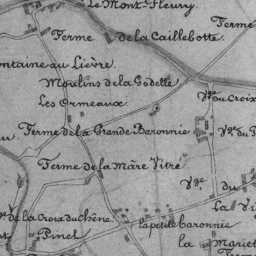 Le Mont Fleury
Ferme
Ferme de la Caillebotte
Fontaine au Lièvre
Moulins de la Godelle
Les Ormeaux
Vve du Croix
Ferme de la Grande Baronnie
Ferme de la Mare Vitre
Vge du
La
de la Croix du Chêne
la petite baronnie
Pinel
la Mariet